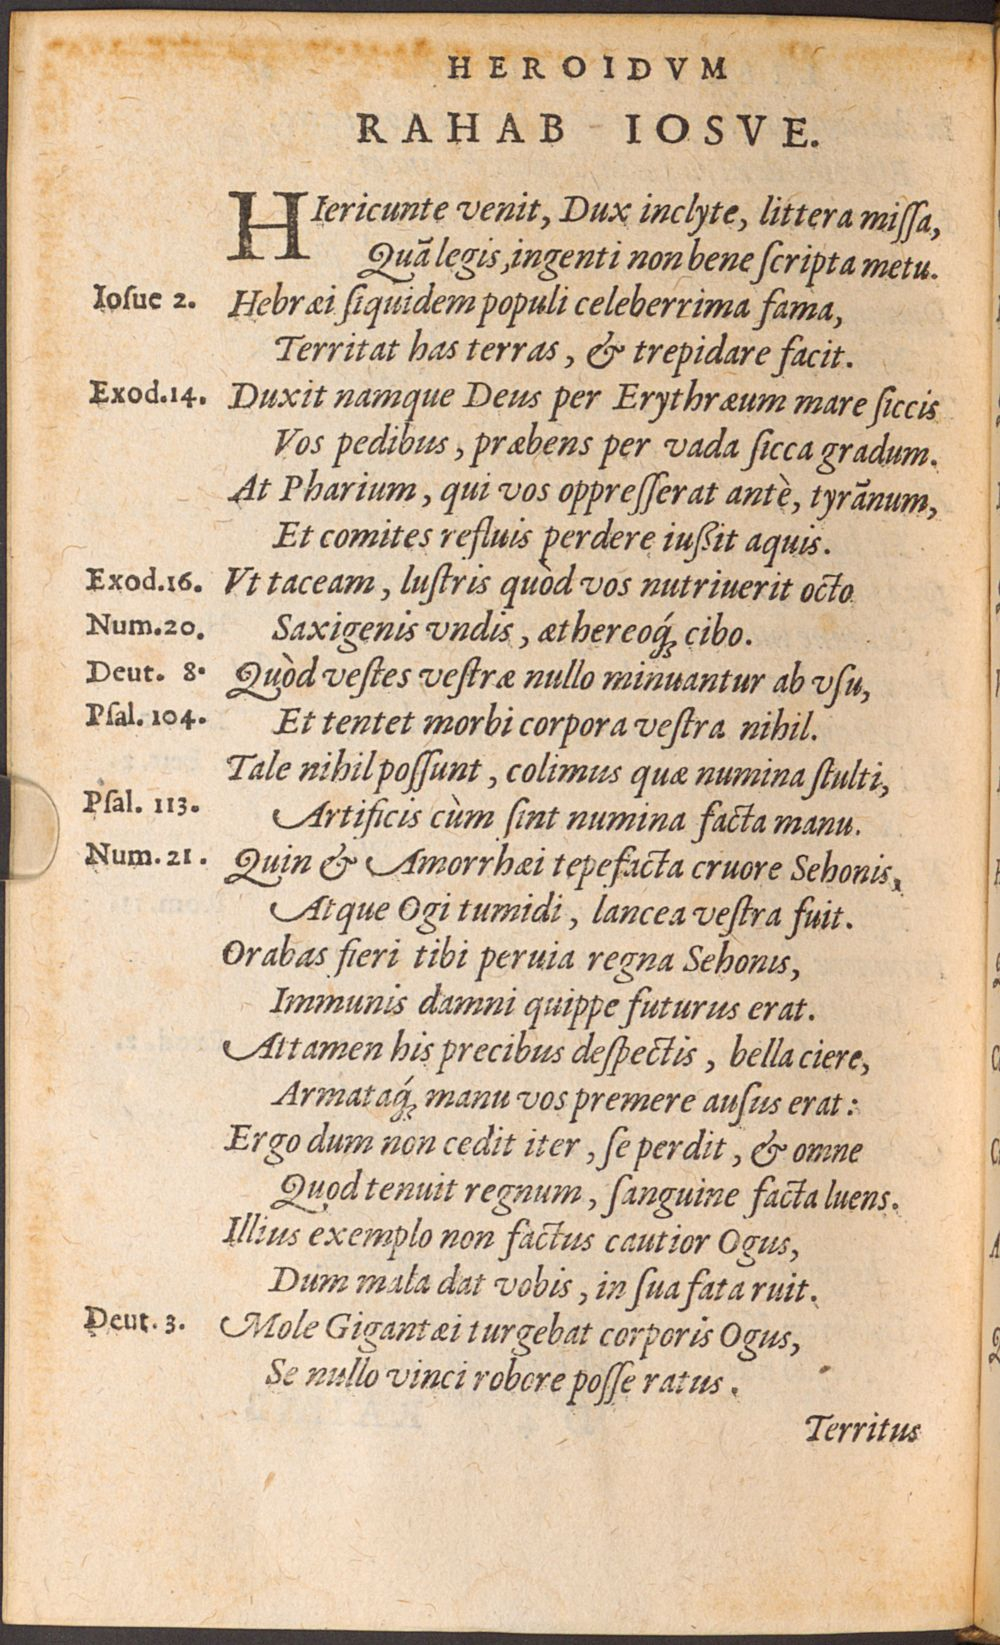 HEROIDVM
RAHAB IOSVE.
HIericunte venit, Dux inclyte, littera miſſa,
Quā legis, ingenti non bene ſcripta metu.
Ioſue 2. Hebræi ſiquidem populi celeberrima fama,
Territat has terras, & trepidare facit.
Exod.14. Duxit namque Deus per Erythræum mare ſiccis
Vos pedibus, præbens per vada ſicca gradum.
At Pharium, qui vos oppreſſerat antè, tyrānum,
Et comites refluis perdere iußit aquis.
Exod.16. Vt taceam, luſtris quòd vos nutriuerit octo
Num.20. Saxigenis vndis, æthereoq́; cibo.
Deut. 8. Quòd veſtes veſtræ nullo minuantur ab vſu,
Pſal. 104. Et tentet morbi corpora veſtra nihil.
Tale nihil poſſunt, colimus quæ numina ſtulti,
Pſal. 113. Artificis cùm ſint numina facta manu.
Num. 21. Quin & Amorrhæi tepefacta cruore Sehonis,
Atque Ogi tumidi, lancea veſtra fuit.
Orabas fieri tibi peruia regna Sehonis,
Immunis damni quippe futurus erat.
Attamen his precibus deſpectis, bella ciere,
Armataq́; manu vos premere auſus erat:
Ergo dum non cedit iter, ſe perdit, & omne
Quod tenuit regnum, ſanguine facta luens.
Illius exemplo non factus cautior Ogus,
Dum mala dat vobis, in ſua fata ruit.
Deut. 3. Mole Gigantæi turgebat corporis Ogus,
Se nullo vinci robore poſſe ratus.
Territus